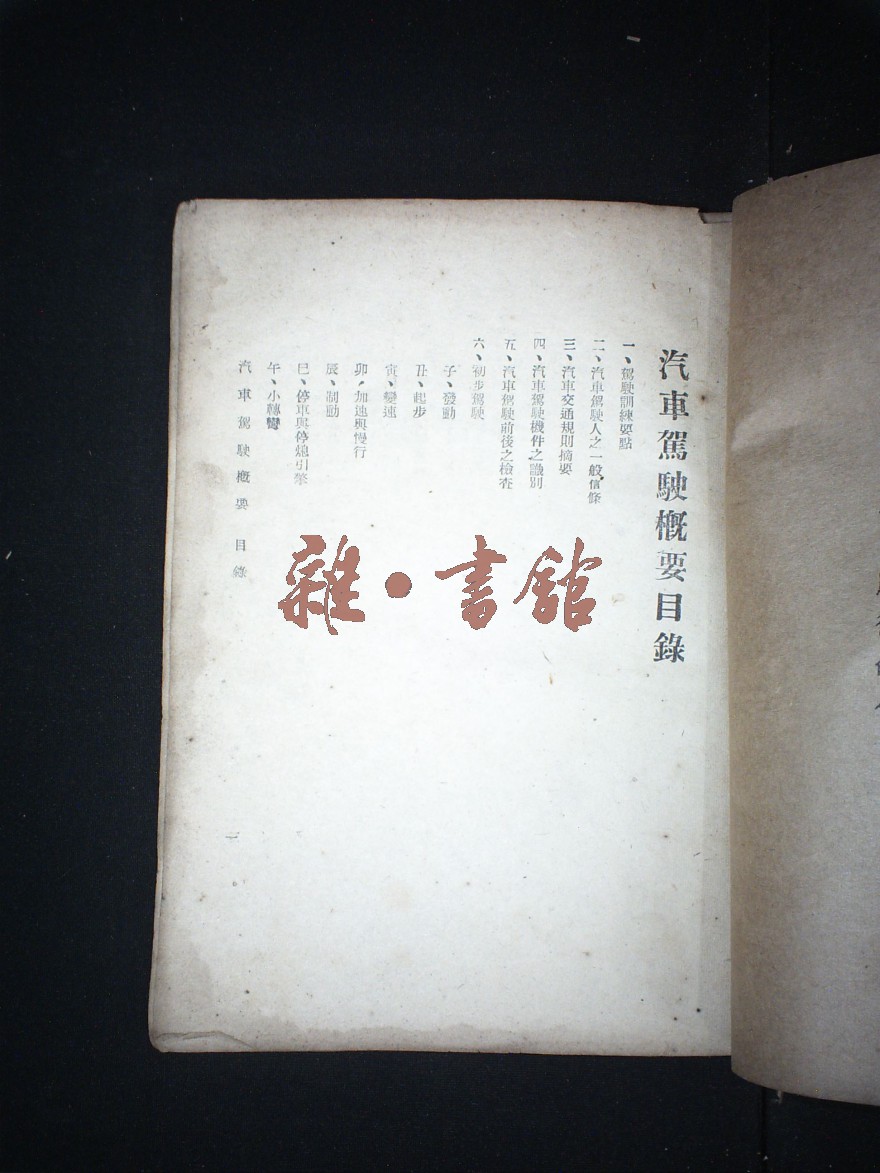 汽車駕駛概要目錄
一、駕駛訓練要點
二、汽車駕駛人之一般信條
三、汽車交通規則摘要
四、汽車駕駛機件之識別
五、汽車駕駛前後之檢查
六、初步駕駛
子、發動
丑、起步
寅、變速
卯、加速與慢行
辰、制動
巳、停車與停熄引擎
午、小轉彎
汽車駕駛概要 目錄
一
雜·書館